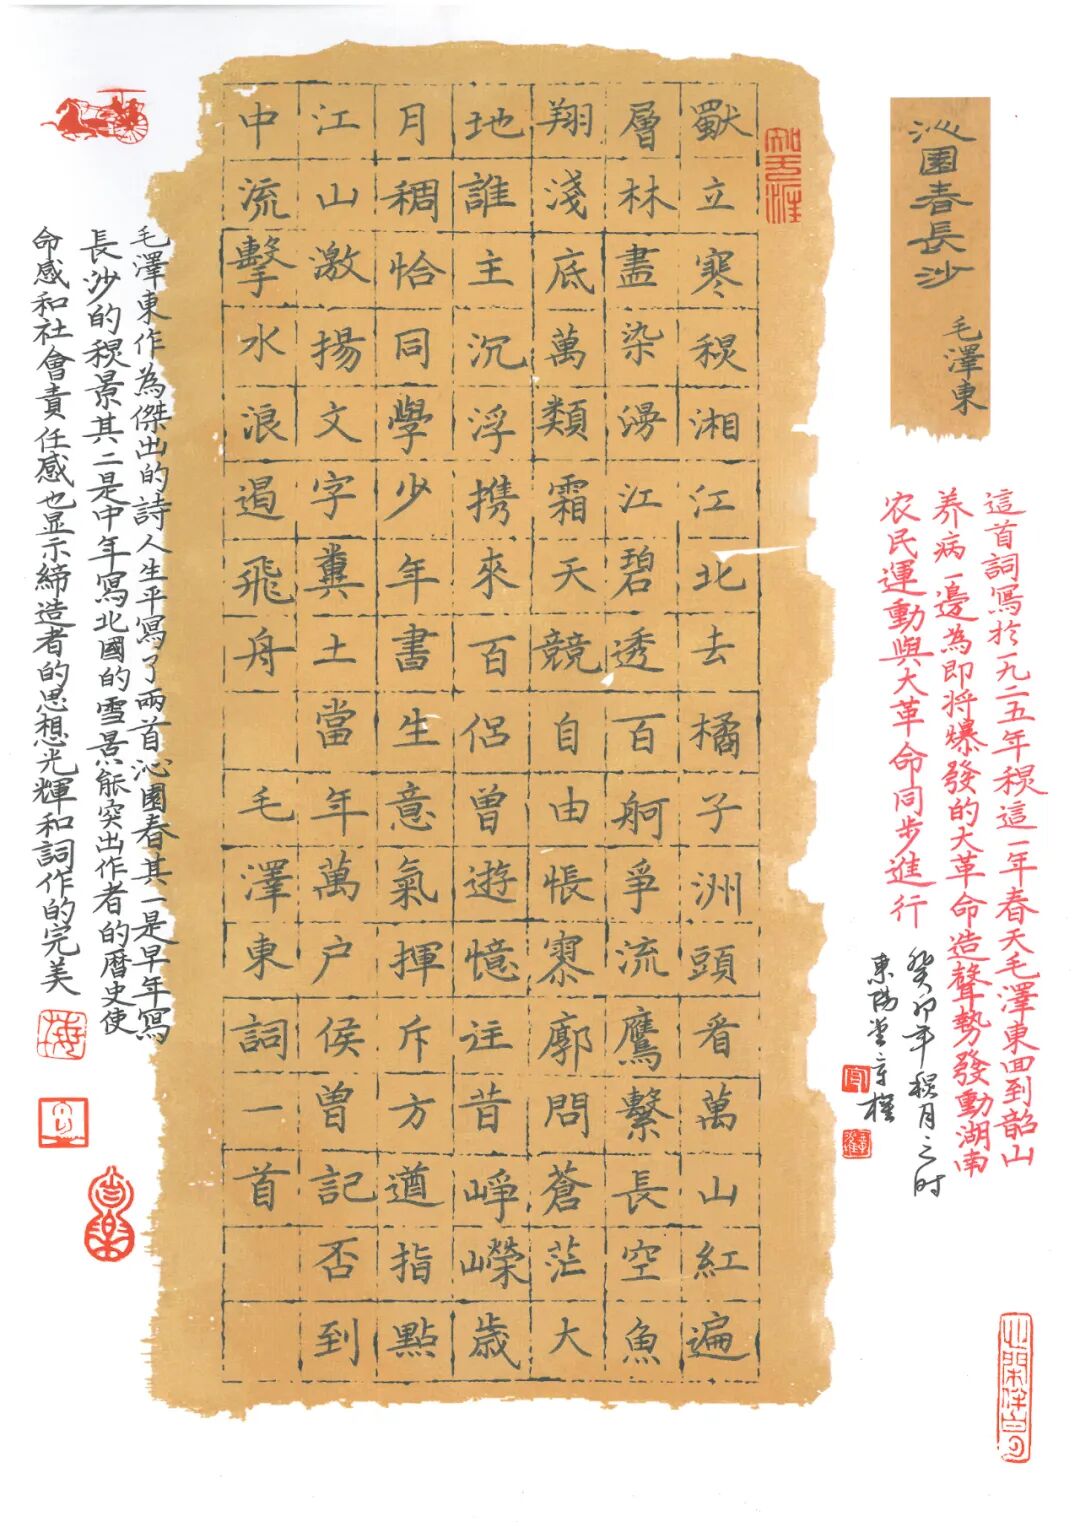 沁園春長沙
毛澤東
獨立寒秋湘江北去橘子洲頭看萬山紅遍
層林盡染漫江碧透百舸爭流鷹繫長空魚
翔淺底萬類霜天競自由悵寥廓問蒼茫大
地誰主沉浮携來百侣曾遊憶往昔崢嶸歲
月稠恰同學少年書生意氣揮斥方遒指點
江山激揚文字糞土當年萬户侯曾記否到
中流擊水浪遏飛舟 毛澤東詞一首
這首詞寫於一九二五年秋這一年春天毛澤東回到韶山
养病一邊為即将爆發的大革命造聲勢發動湖南
农民運動與大革命同步進行
癸卯年秋月之时
毛澤東作為傑出的詩人生平寫了兩首沁園春其一是早年寫
長沙的秋景其二是中年寫北國的雪景能突出作者的曆史使
命感和社會責任感也显示締造者的思想光輝和詞作的完美